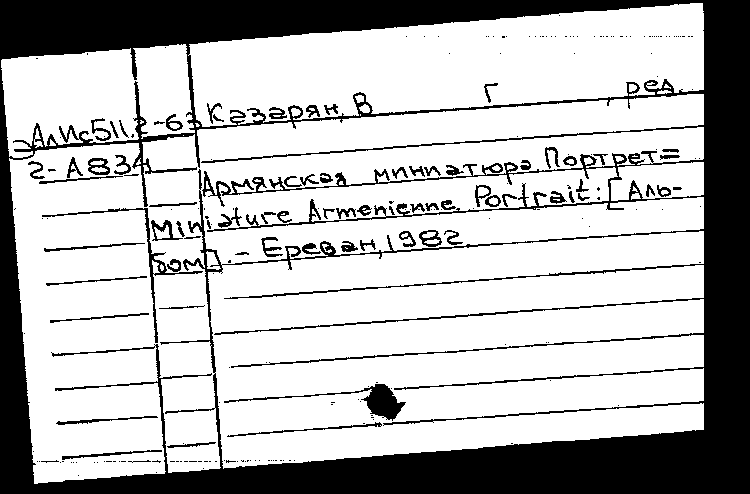 ЭАлИс511.2-63 Казарян, В Г , ред.
2-А834
Армянская миниатюра. Портрет=
Miniature Armenienne. Portrait: [Аль-
бом]. - Ереван, 1982.